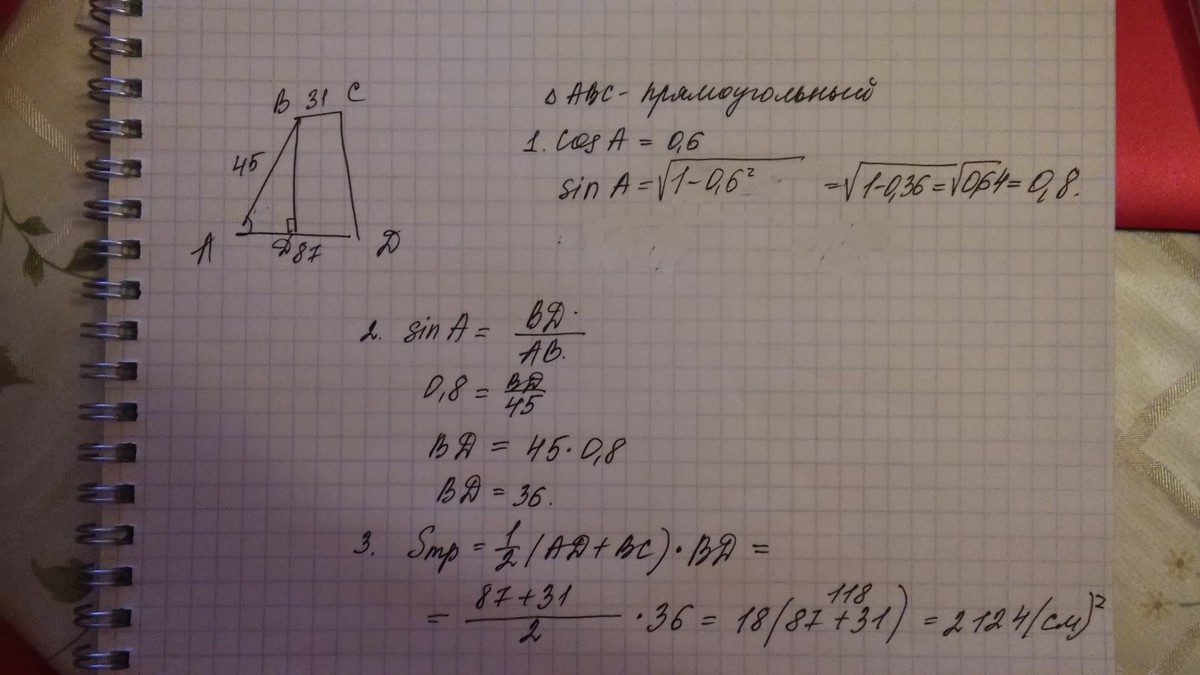 B 31 C
45
A Д 87 Д
△ ABC - прямоугольный
1. cos A = 0,6
sin A = √1-0,6² = √1-0,36 = √0,64 = 0,8.
2. sin A = BД / AB.
0,8 = BД / 45
BД = 45·0,8
BД = 36.
3. Sтр = 1/2 (AД + BC) · BД =
= 87+31 / 2 · 36 = 18(87+31) = 2124(см)²
118